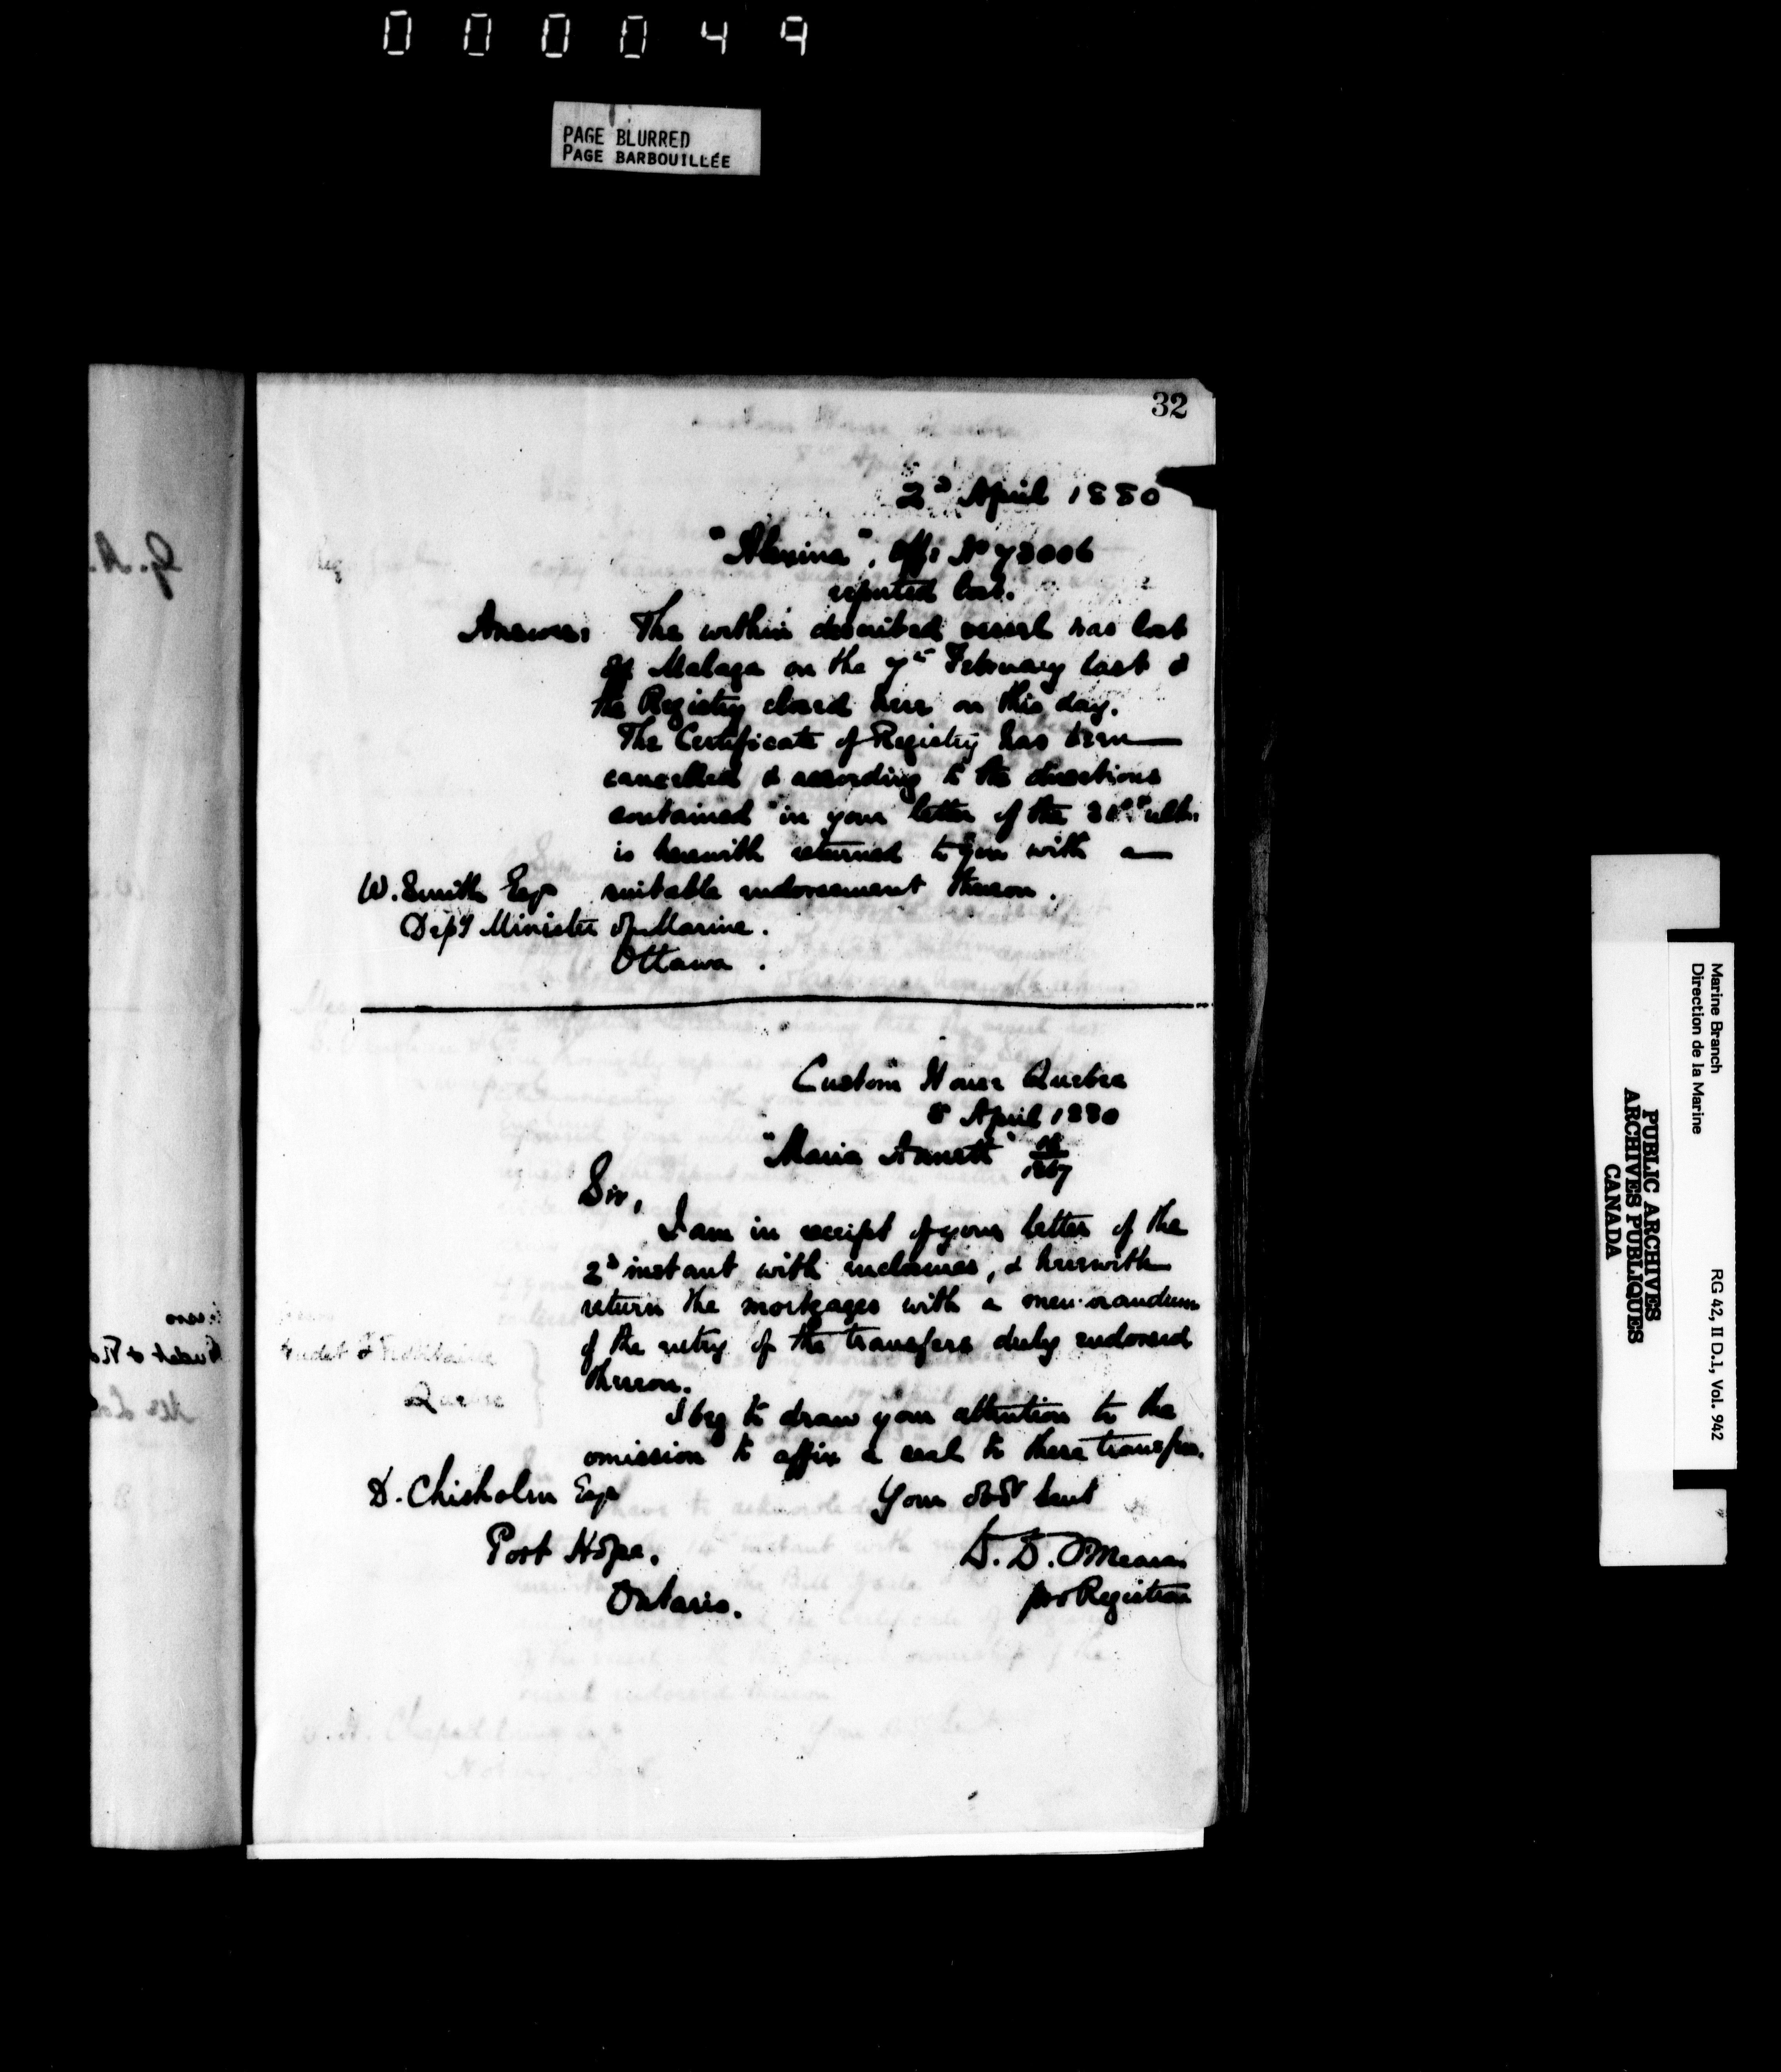 000049
PAGE BLURRED
PAGE BARBOUILLÉE
32
2d April 1880
"Alexina", Off: No 73006
reported lost.
Answer: The within described vessel was lost
off Malaga on the 7th February last &
the Registry closed here on this day.
The Certificate of Registry has been
cancelled & according to the directions
contained in your letter of the 31st ulto.
is herewith returned to you with a
W. Smith Esqr suitable endorsement thereon.
Depy Minister of Marine.
Ottawa.
Custom House Quebec
8 April 1880
"Maria Annett"
Sir,
I am in receipt of your letter of the
2d instant with inclosures, & herewith
return the mortgages with a memorandum
of the entry of the transfers duly endorsed
thereon.
I beg to draw your attention to the
omission to affix a seal to these transfers.
D. Chisholm Esqr Your obdt Servt
Port Hope. D. D. O'Meara
Ontario. pro Registrar
Marine Branch
Direction de la Marine
RG 42, II D.1, Vol. 942
PUBLIC ARCHIVES
ARCHIVES PUBLIQUES
CANADA